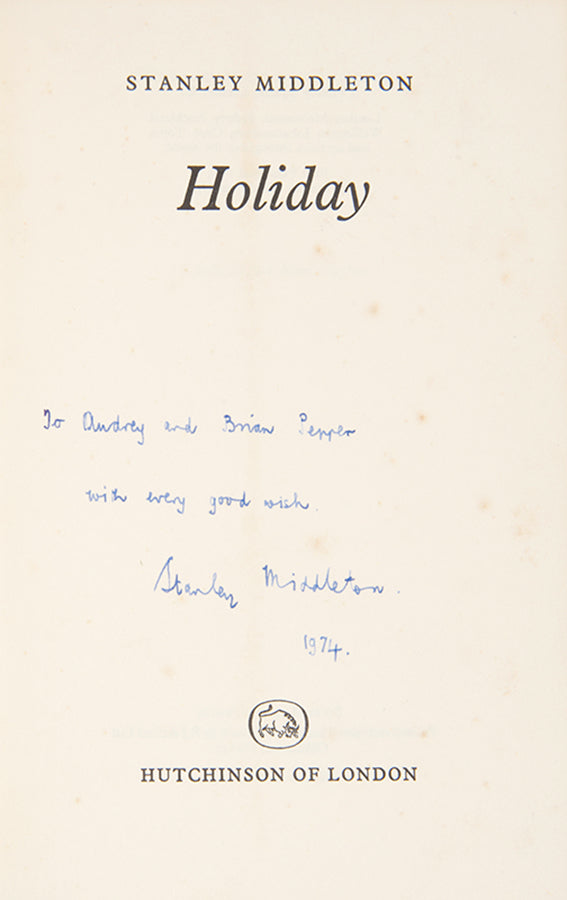 STANLEY MIDDLETON
Holiday
To Audrey and Brian Pepper
with every good wish.
Stanley Middleton.
1974.
HUTCHINSON OF LONDON